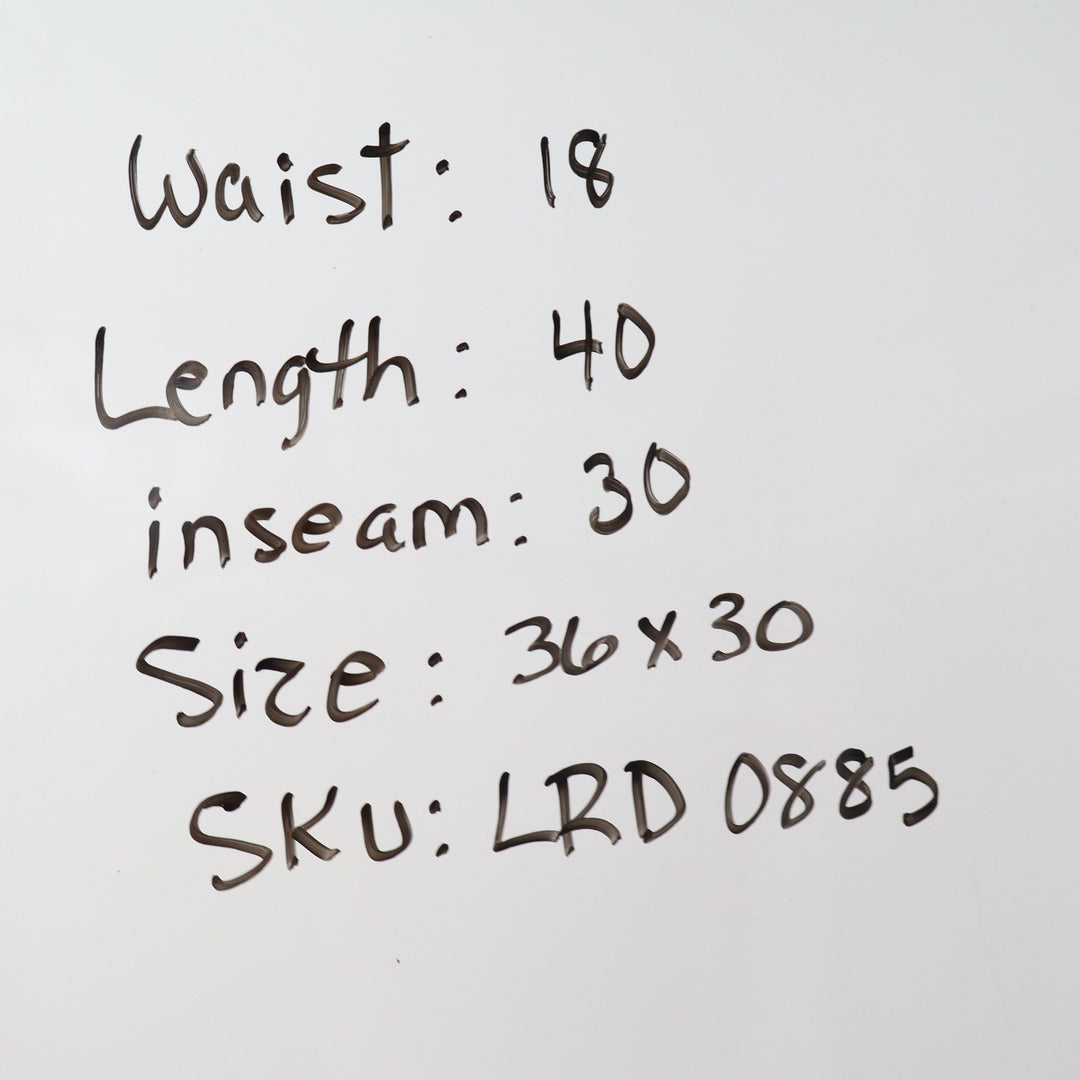 Waist: 18
Length: 40
inseam: 30
Size: 36x30
SKU: LRD 0885